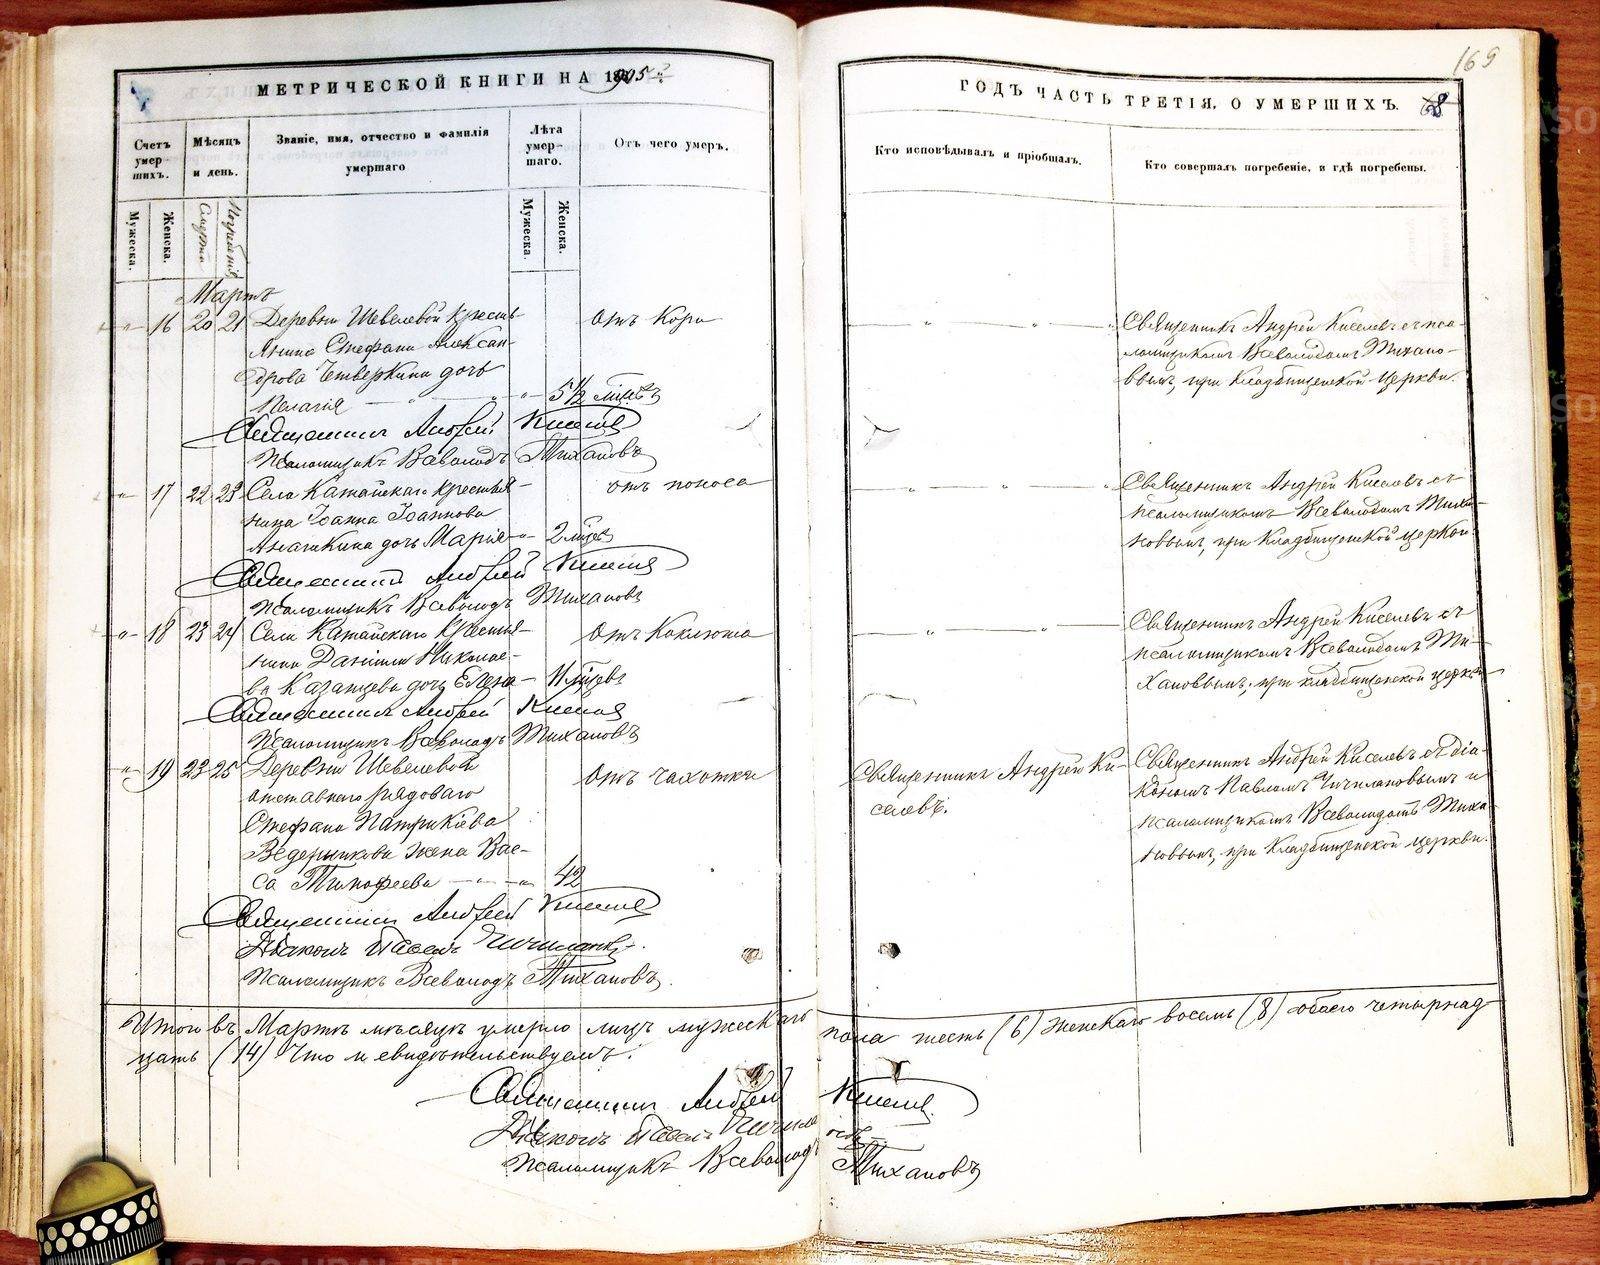 169
МЕТРИЧЕСКОЙ КНИГИ НА 1905
ГОДЪ ЧАСТЬ ТРЕТІЯ, О УМЕРШИХЪ. 68
Счетъ умер-шихъ.
Мѣсяцъ и день.
Званіе, имя, отчество и фамилія умершаго
Лѣта умер-шаго.
Отъ чего умеръ.
Кто исповѣдывалъ и пріобщалъ.
Кто совершалъ погребеніе, и гдѣ погребены.
Мужеска.
Женска.
Смерти
Погребенія
Мужеска.
Женска.
Мартъ
" 16 20 21 Деревни Шевелевой кресть-
янина Стефана Алексан-
дрова Четверкина дочь
Пелагія " " " 5½ лѣтъ
отъ Кори
" " "
Священникъ Андрей Киселевъ съ пса-
ломщикомъ Всеволодомъ Тихано-
вымъ, при Кладбищенской церкви.
Священникъ Андрей Киселевъ
Псаломщикъ Всеволодъ Тихановъ
" 17 22 23 Села Катайскаго крестья-
нина Іоанна Іоаннова
дочь Марія " 2 лѣтъ
отъ поноса
" " "
Священникъ Андрей Киселевъ съ
псаломщикомъ Всеволодомъ Тиха-
новымъ, при Кладбищенской церкви.
Священникъ Андрей Киселевъ
Псаломщикъ Всеволодъ Тихановъ
" 18 23 24 Села Катайскаго крестья-
нина Даніила Николае-
ва Казанцева дочь Елена 11 лѣтъ
отъ Коклюша
" "
Священникъ Андрей Киселевъ съ
псаломщикомъ Всеволодомъ Ти-
хановымъ, при кладбищенской церкви
Священникъ Андрей Киселевъ
Псаломщикъ Всеволодъ Тихановъ
" 19 23 25 Деревни Шевелевой
отставнаго рядоваго
Стефана Патрикіева
Ведерникова жена Вас-
са Тимофеева " " 42
отъ чахотки
Священникъ Андрей Ки-
селевъ.
Священникъ Андрей Киселевъ съ діа-
кономъ Павломъ Чичилановымъ и
псаломщикомъ Всеволодомъ Тиха-
новымъ, при Кладбищенской церкви.
Священникъ Андрей Киселевъ
Діаконъ Павелъ Чичилановъ.
Псаломщикъ Всеволодъ Тихановъ.
Итого въ Мартѣ мѣсяцѣ умерло лицъ мужескаго пола шесть (6) женскаго восемь (8) обоего четырнад-
цать (14) Что и свидѣтельствуемъ:
Священникъ Андрей Киселевъ.
Діаконъ Павелъ Чичилановъ
Псаломщикъ Всеволодъ Тихановъ